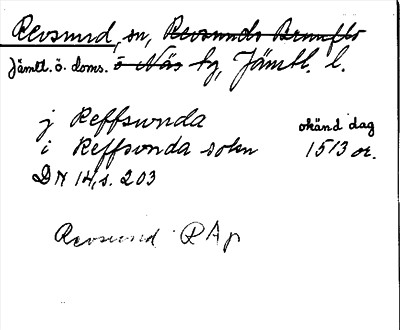 Revsund, sn, Revsunds Brunflo
Jämtl. ö. doms. ö Näs tg, Jämtl. l.
j Reffswnda okänd dag
i Reffsonda sokn 1513 or.
DN 14, s. 203
Revsund RAp